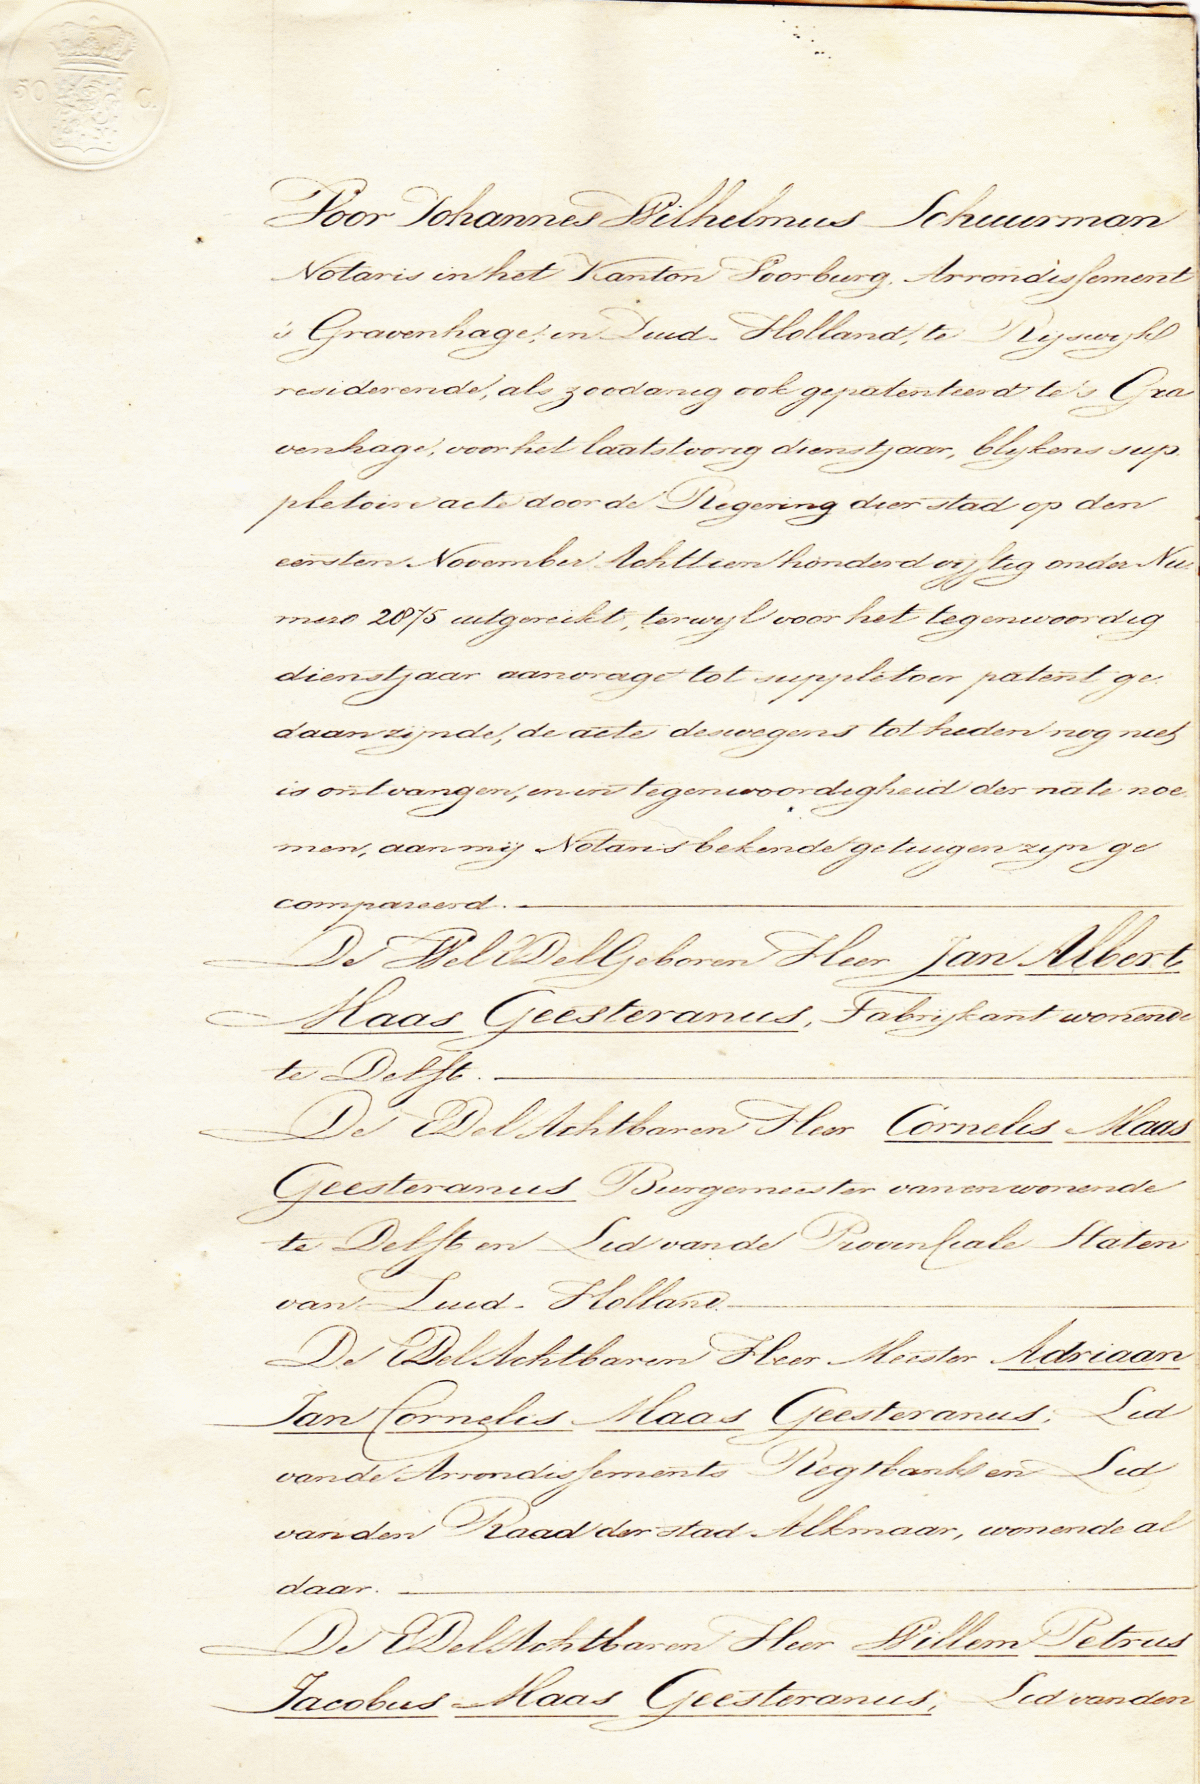 50 C.
Voor Johannes Wilhelmus Schuurman
Notaris in het Kanton Voorburg, Arrondissement
's Gravenhage, in Zuid-Holland, te Rijswijk
residerende, als zoodanig ook gepatenteerd te 's Gra
venhage, voor het laatstvorig dienstjaar, blijkens sup
pletoire acte door de Regering dier stad op den
eersten November Achttien honderd vijftig onder Nu-
mero 2875 uitgereikt, terwijl voor het tegenwoordig
dienstjaar aanvrage tot suppletoir patent ge-
daan zijnde, de acte deswegens tot heden nog niet
is ontvangen, en in tegenwoordigheid der nate noe
men, aan mij Notaris bekende getuigen zijn ge
compareerd.
De WelEDelGeboren Heer Jan Albert
Maas Geesteranus, Fabrijkant wonende
te Delft.
De EDelAchtbaren Heer Cornelis Maas
Geesteranus Burgemeester van en wonende
te Delft en Lid van de Provinciale Staten
van Zuid-Holland.
De EDelAchtbaren Heer Meester Adriaan
Jan Cornelis Maas Geesteranus, Lid
van de Arrondissements Regtbank en Lid
van den Raad der stad Alkmaar, wonende al
daar.
De EDelAchtbaren Heer Willem Petrus
Jacobus Maas Geesteranus, Lid van den